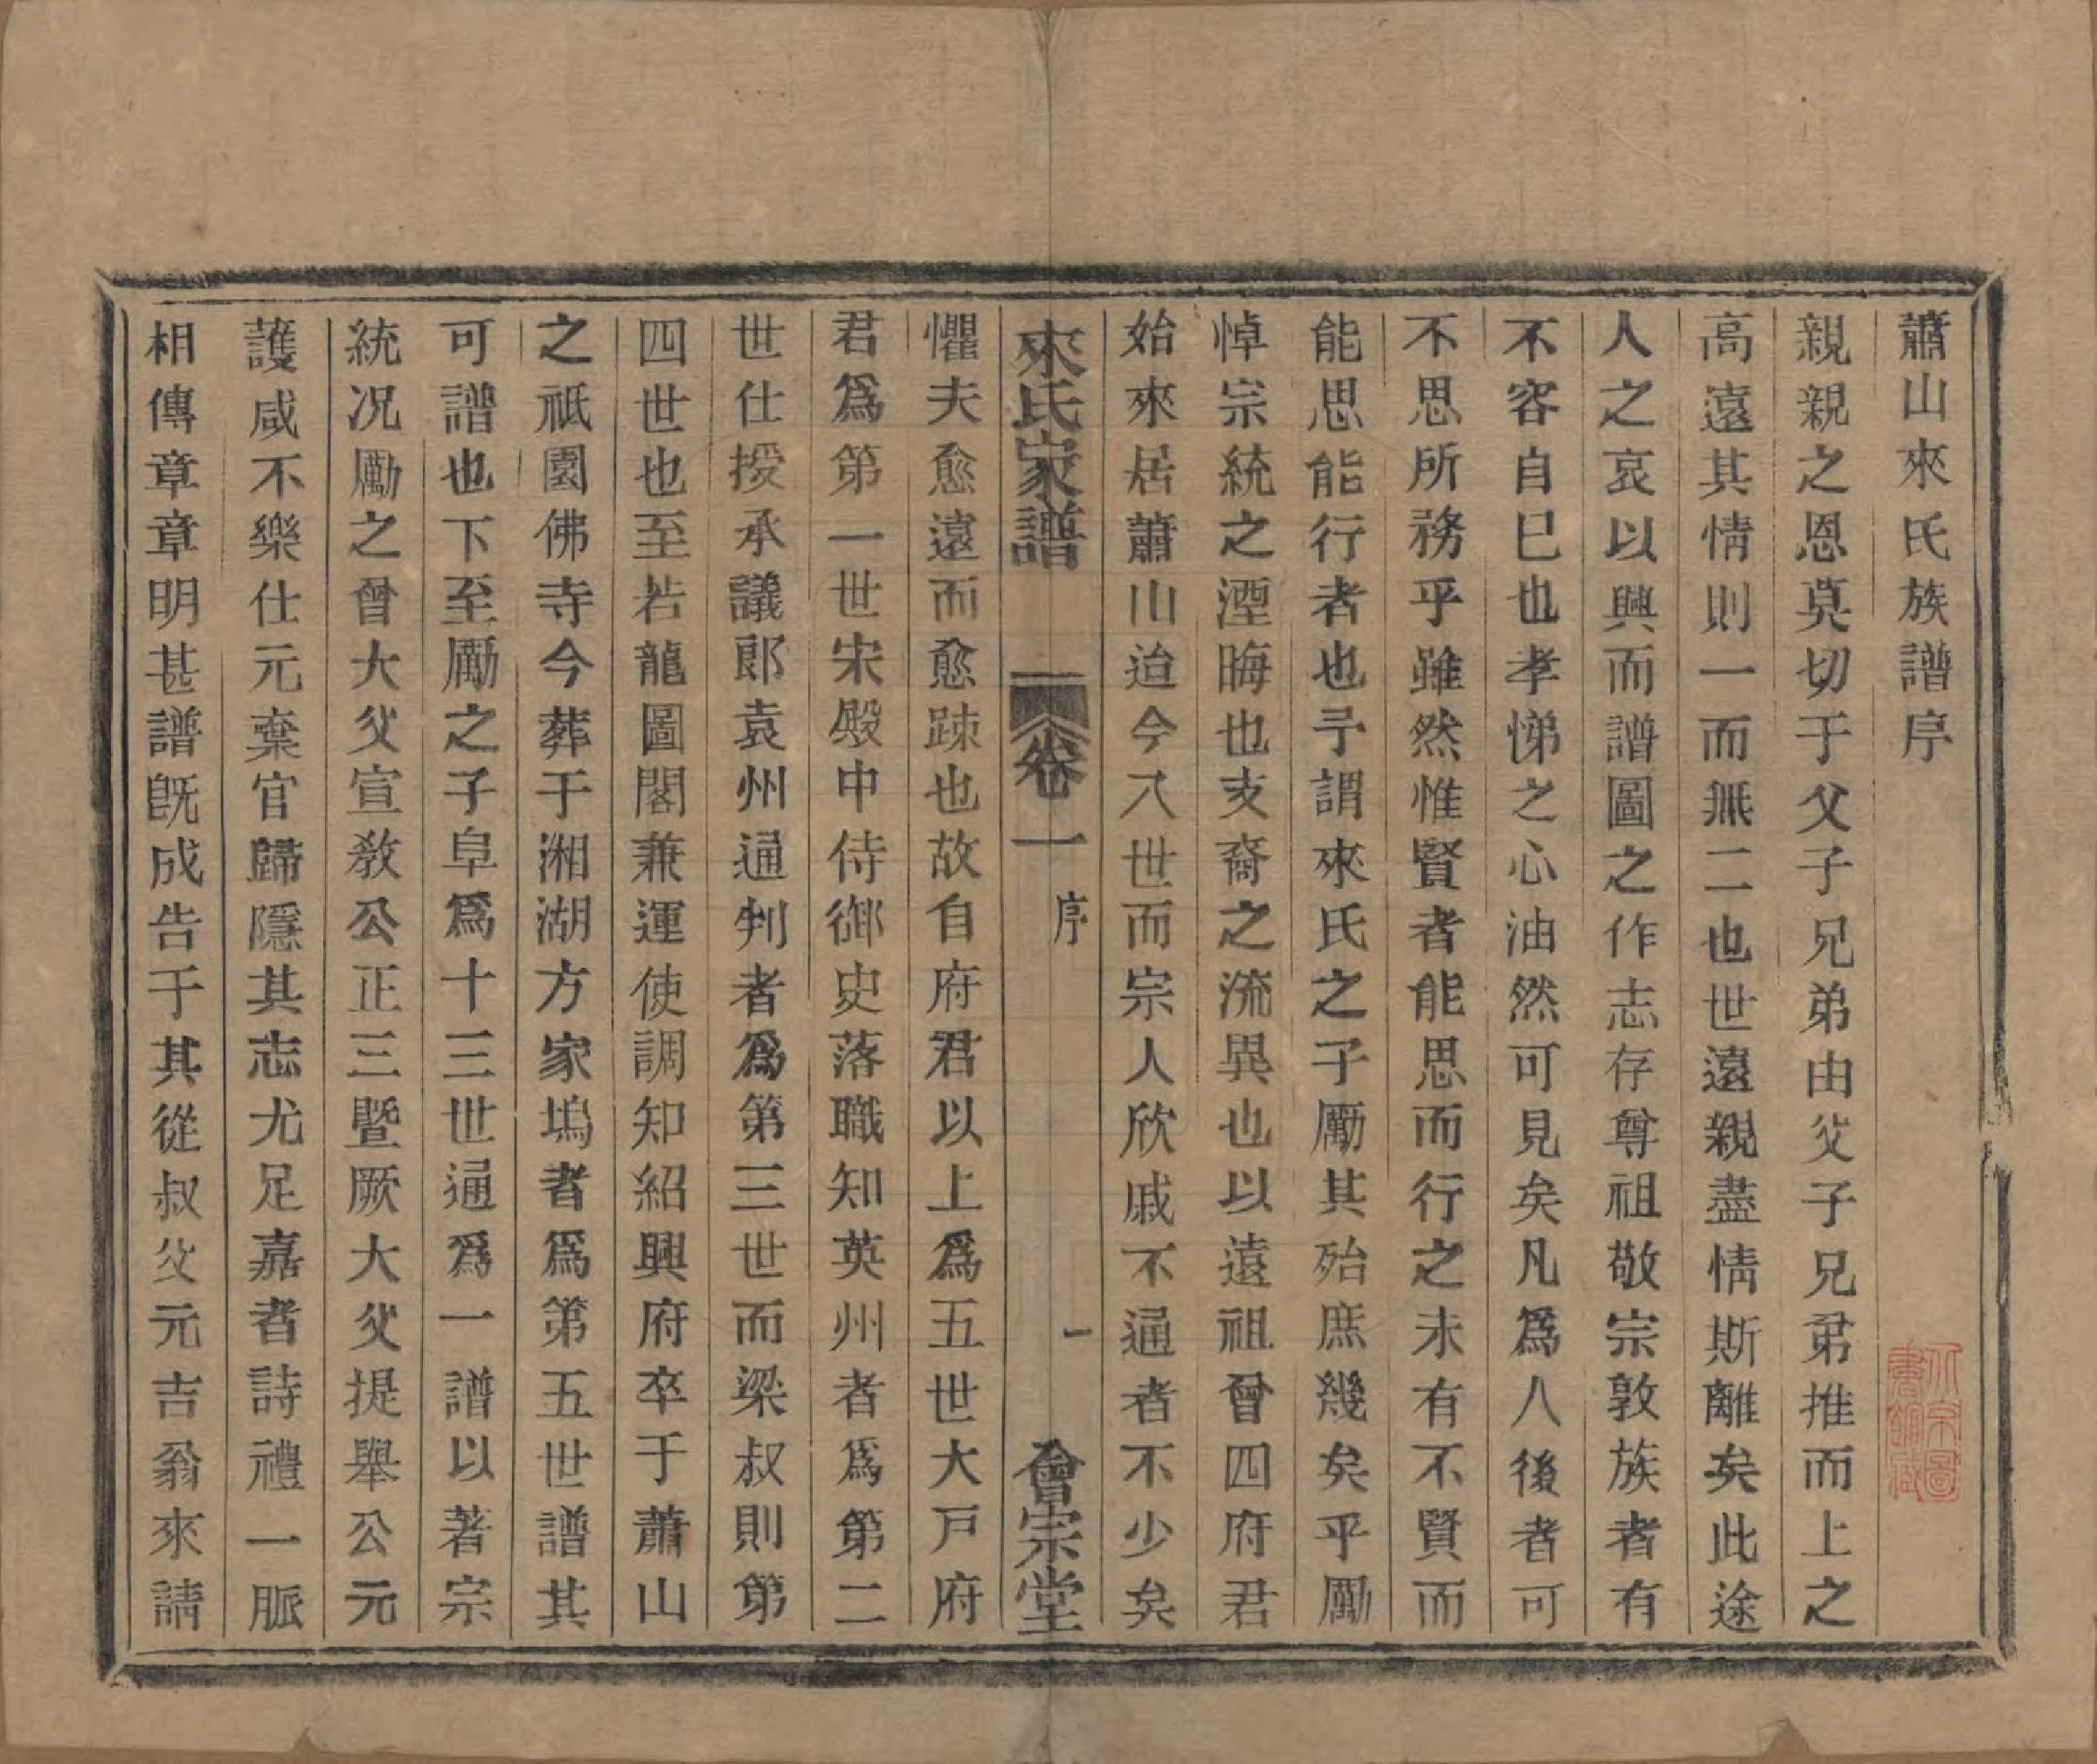 蕭山來氏族譜序
親親之恩莫切于父子兄弟由父子兄弟推而上之
高遠其情則一而無二也世遠親盡情斯離矣此途
人之哀以興而譜圖之作志存尊祖敬宗敦族者有
不容自巳也孝悌之心油然可見矣凡爲人後者可
不思所務乎雖然惟賢者能思而行之未有不賢而
能思能行者也予謂來氏之子勵其殆庶幾矣乎勵
悼宗統之湮晦也支裔之流異也以遠祖曾四府君
始來居蕭山迨今八世而宗人欣戚不通者不少矣
來氏家譜
卷一
序
一
會宗堂
懼夫愈遠而愈踈也故自府君以上爲五世大戸府
君爲第一世宋殿中侍御史落職知英州者爲第二
世仕授承議郎袁州通判者爲第三世而梁叔則第
四世也至若龍圖閣兼運使調知紹興府卒于蕭山
之祇園佛寺今葬于湘湖方家塢者爲第五世譜其
可譜也下至勵之子阜爲十三世通爲一譜以著宗
統况勵之曾大父宣教公正三暨厥大父提舉公元
護咸不樂仕元棄官歸隱其志尤足嘉者詩禮一脈
相傳章章明甚譜既成告于其從叔父元吉翁來請